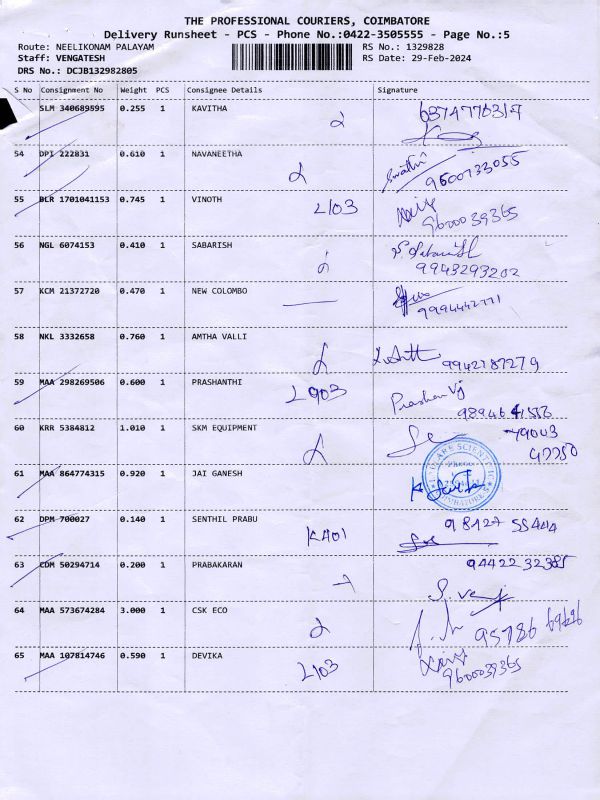 THE PROFESSIONAL COURIERS, COIMBATORE
Delivery Runsheet - PCS - Phone No.:0422-3505555 - Page No.:5
Route: NEELIKONAM PALAYAM RS No.: 1329828
Staff: VENGATESH RS Date: 29-Feb-2024
DRS No.: DCJB132982805
S No Consignment No Weight PCS Consignee Details Signature
SLM 340689895 0.255 1 KAVITHA
54 DPI 222831 0.610 1 NAVANEETHA
9600733055
55 BLR 1701041153 0.745 1 VINOTH L103
9600039365
56 NGL 6074153 0.410 1 SABARISH
9943293202
57 KCM 21372720 0.470 1 NEW COLOMBO
9994442771
58 NKL 3332658 0.760 1 AMTHA VALLI
9942787279
59 MAA 298269506 0.600 1 PRASHANTHI L903
60 KRR 5384812 1.010 1 SKM EQUIPMENT
61 MAA 864774315 0.920 1 JAI GANESH
62 DPM 700027 0.140 1 SENTHIL PRABU K401
98127 55444
63 CDM 50294714 0.200 1 PRABAKARAN 9442232385
64 MAA 573674284 3.000 1 CSK ECO
95786
65 MAA 107814746 0.590 1 DEVIKA L103
9600039365